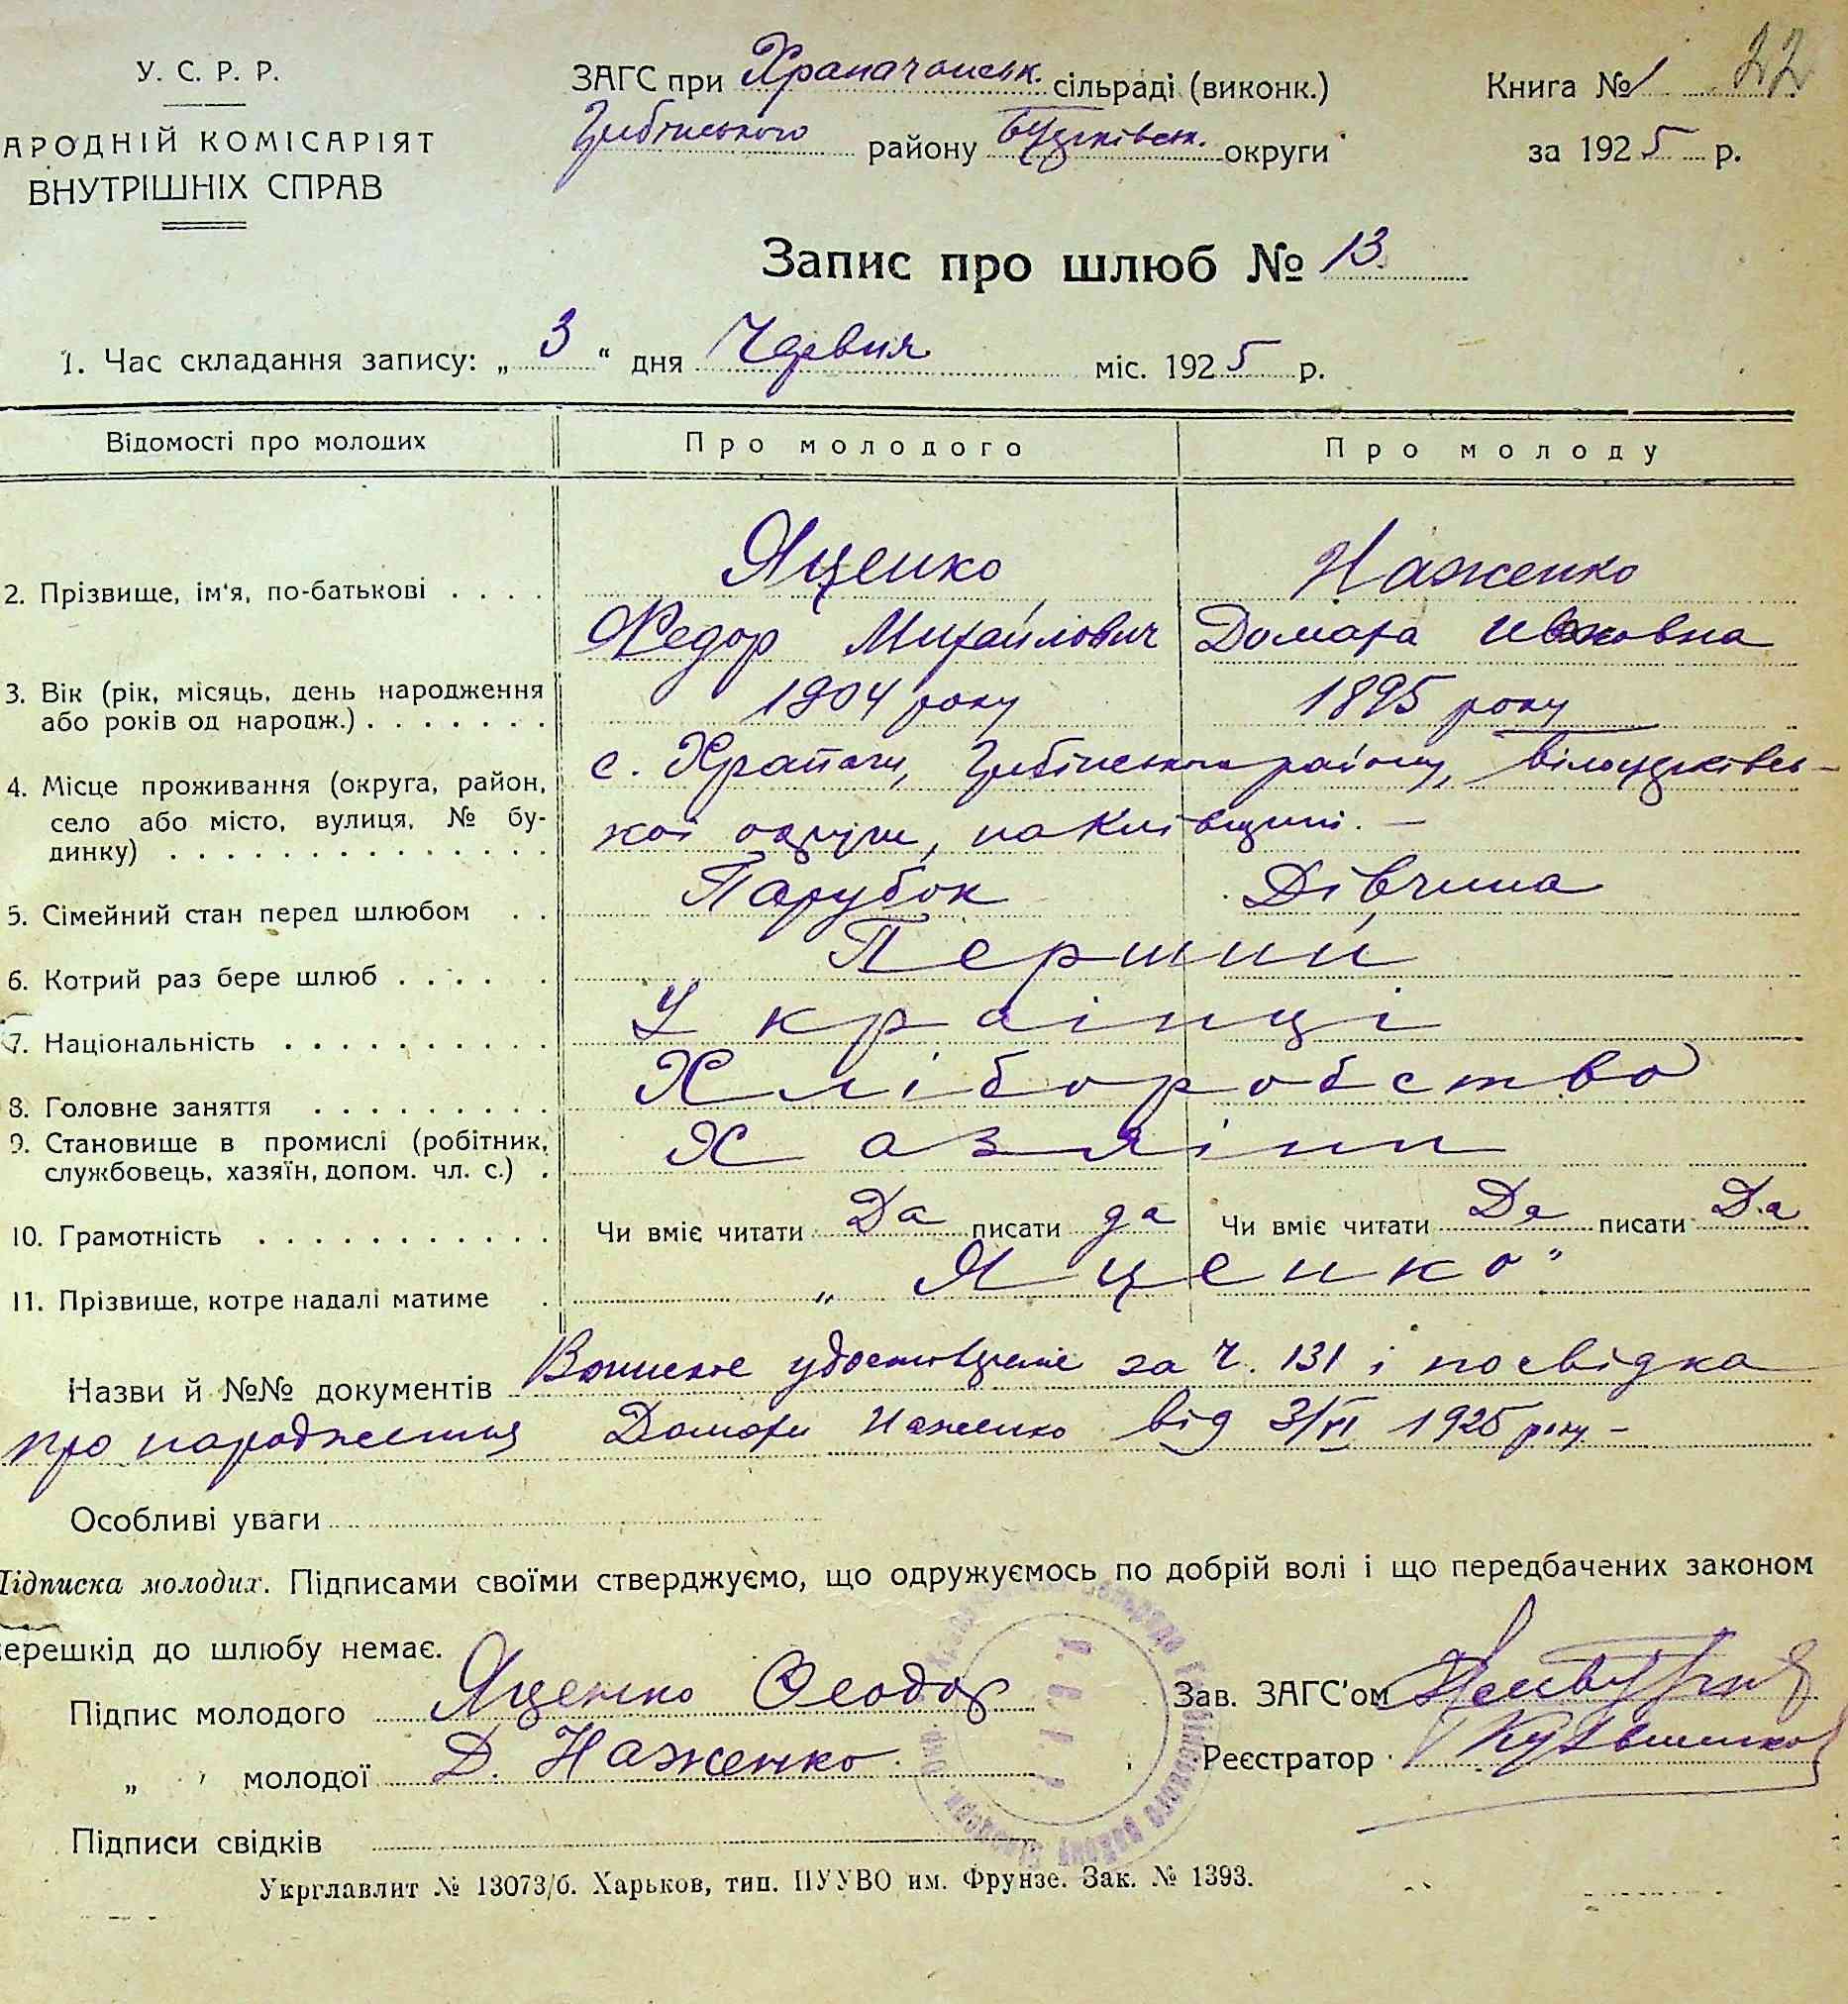 У. С. Р. Р.
АРОДНІЙ КОМІСАРІЯТ
ВНУТРІШНІХ СПРАВ
ЗАГС при Храпачанськ. сільраді (виконк.)
району округи
Книга № 1 22
за 1925 р.
Запис про шлюб № 13
1. Час складання запису: „ 3 “ дня Червня міс. 1925 р.
Відомості про молодих Про молодого Про молоду
2. Прізвище, ім'я, по-батькові . . . . Яценко Наженко
Федор Михайлович Домара Ивановна
3. Вік (рік, місяць, день народження 1904 року 1895 року
або років од народж.) . . . . . . .
4. Місце проживання (округа, район, с. Храпачи, району, Білоцерківсь-
село або місто, вулиця, № бу- кої округи, на Київщині. —
динку) . . . . . . . . . . . . . .
5. Сімейний стан перед шлюбом . . Парубок Дівчина
6. Котрий раз бере шлюб . . . . . Перший
7. Національність . . . . . . . . . . Україінці
8. Головне заняття . . . . . . . . . Хліборобство
9. Становище в промислі (робітник, Хазяіни
службовець, хазяїн, допом. чл. с.) .
10. Грамотність . . . . . . . . . . . Чи вміє читати Да писати да Чи вміє читати Да писати Да
11. Прізвище, котре надалі матиме . „ Яценко"
Назви й №№ документів за ч. 131 і посвідка
про народження Домари Наженко від 3/VI 1925 року –
Особливі уваги
Підписка молодих. Підписами своїми стверджуємо, що одружуємось по добрій волі і що передбачених законом
ерешкід до шлюбу немає.
Підпис молодого Яценко Феодор Зав. ЗАГС'ом
„ молодої Д. Наженко. Реєстратор
Підписи свідків
Укрглавлит № 13073/б. Харьков, тип. ПУУВО им. Фрунзе. Зак. № 1393.